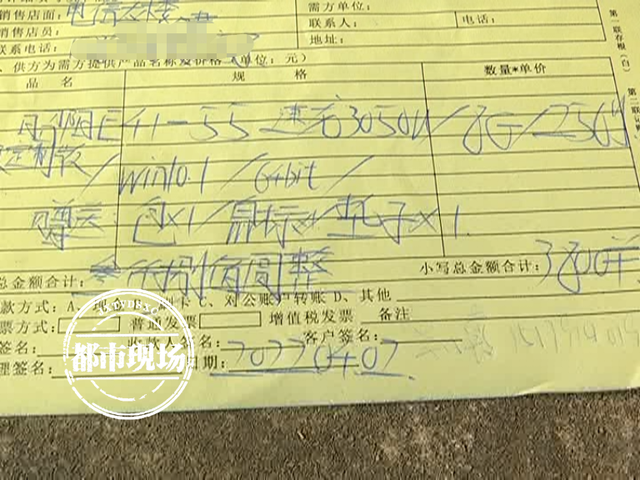 销售店面： 电信大楼 需方单位：
销售店员： 联系人： 电话：
联系电话： 地址：
、供方为需方提供产品名称及价格（单位：元）
品 名 规 格 数量*单价
E41-55 速龙3050U/8G/256G
定制版/win10.1/64bit/
包x1/鼠标x1/垫子x1.
总金额合计： 叁仟捌佰圆整 小写总金额合计： 3800元
款方式：A、现 刷卡 C、对公账户转账 D、其他
票方式： 普通发票 增值税发票 备注
签名： 收款人签名： 客户签名：
理签名： 日期： 20220402
第一联存根（白）
都市现场